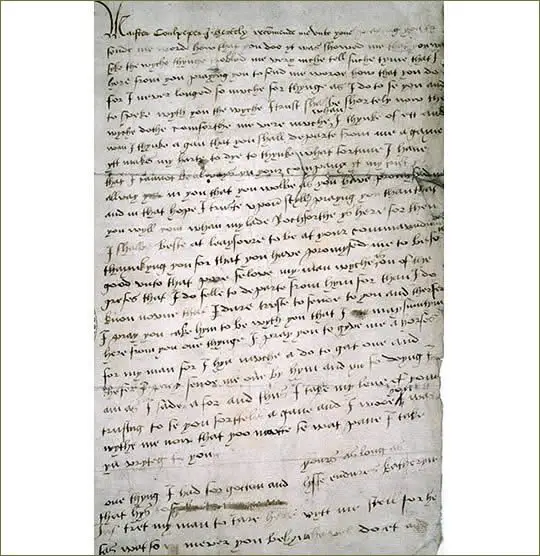 Master Coulpeper I hertely recomende me unto youe praying you to
sende me worde how that you doo yt was showed me that you was
sike the wyche thynge trobled me very muche tell suche tyme that I
here from you praying you to send me worde how that you do
for I never longed so muche for thynge as I do to se you and
to speke wyth you the wyche I trust shal be shortely now the
wyche dothe comforthe me verie muche whan I thynke of ett and
wan I thynke agan that you shall departe from me agane
ytt makes my harte to dye to thynke what fortune I have
that I cannot be always yn your company yt my trust ys
allway in you that you wolbe as you have promysed me
and in that hope I truste upon styll praying you than that
you wyll com whan my lade Rochforthe ys here for then
I shalbe beste at leaysoure to be at your commaundment
thankyng you for that you have promised me to be so
good unto that pore felowe my man wyche is on of the
grefes that I do felle to departe from hym for than I do
know noone that I dare truste to sende to you and therfor
I pray you take hym to be wyth you that I may sumtym
here from you one thynge I pray you to gyve me a horse
for my man for I hyd muche ado to gat one and
therfor I pray sende me one by hym and yn so doying I
am as I sade afor and thus I take my leve of you
trusting to se you shortele agane and I wode you war
wythe me now that you mytte se wat pane I take
yn wryteg to you
yours as long as
lyffe endures Katheryn
one thyng I had forgotten and
that hys to
tret my man to tare here wytt me styll for he
sas watso mever you bed hym he wyll do et